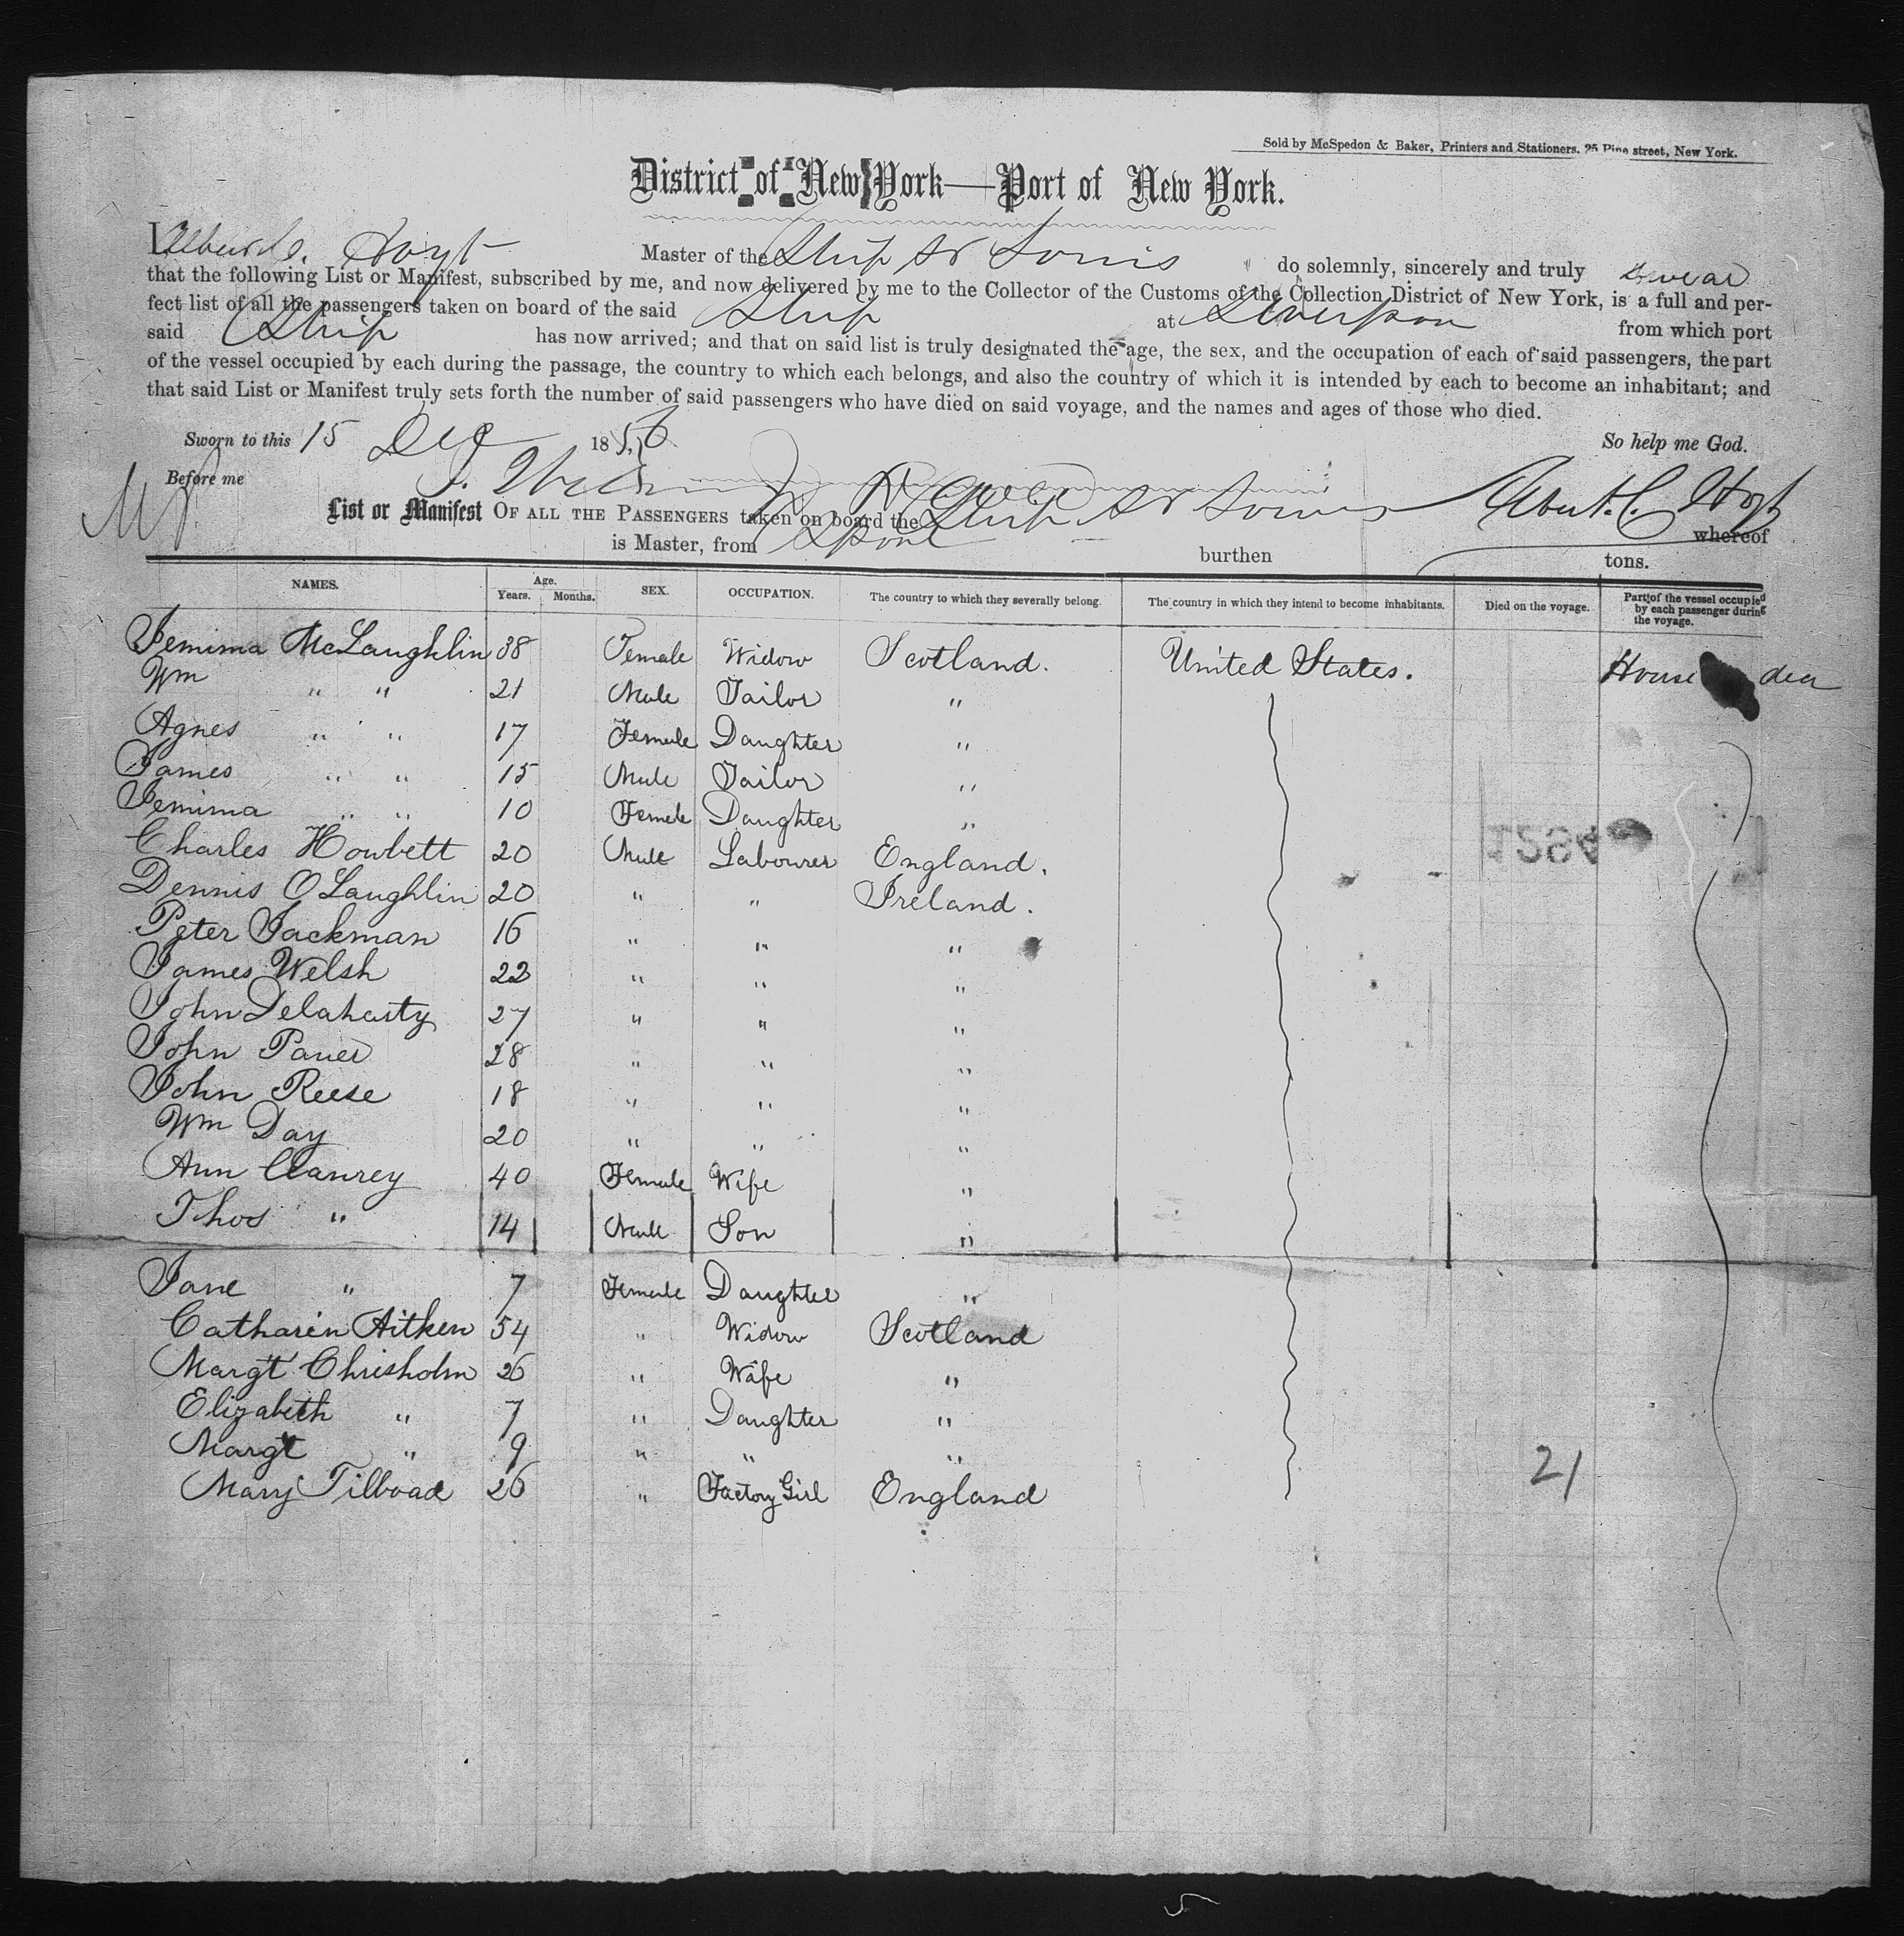 Sold by McSpedon & Baker, Printers and Stationers. 25 Pine street, New York.
District of New York—Port of New York.
I, Hoyt Master of the Ship St Louis do solemnly, sincerely and truly swear
that the following List or Manifest, subscribed by me, and now delivered by me to the Collector of the Customs of the Collection District of New York, is a full and per-
fect list of all the passengers taken on board of the said Ship at Liverpool from which port
said Ship has now arrived; and that on said list is truly designated the age, the sex, and the occupation of each of said passengers, the part
of the vessel occupied by each during the passage, the country to which each belongs, and also the country of which it is intended by each to become an inhabitant; and
that said List or Manifest truly sets forth the number of said passengers who have died on said voyage, and the names and ages of those who died.
Sworn to this 15 Dec 1856 So help me God.
Before me
List or Manifest OF ALL THE PASSENGERS taken on board the Ship St Louis C. Hoyt whereof
is Master, from L pool burthen tons.
NAMES. Age. Years. Months. SEX. OCCUPATION. The country to which they severally belong. The country in which they intend to become inhabitants. Died on the voyage. Part of the vessel occupied by each passenger during the voyage.
Jemima McLaughlin 38 Female Widow Scotland. United States. House
Wm " " 21 Male Tailor "
Agnes " " 17 Female Daughter "
James " " 15 Male Tailor "
Jemima " " 10 Female Daughter "
Charles Howbett 20 Male Labourer England.
Dennis O'Laughlin 20 " " Ireland.
Peter Jackman 16 " " "
James Welsh 22 " " "
John Delahasty 27 " " "
John Pauer 28 " " "
John Reese 18 " " "
Wm Day 20 " " "
Ann Clanrey 40 Female Wife "
Thos " 14 Male Son "
Jane " 7 Female Daughter "
Catharin Aitken 54 " Widow Scotland
Margt Chrisholm 26 " Wife "
Elizabeth " 7 " Daughter "
Margt " 9 " " "
Mary Tilboad 26 " Factory Girl England
21